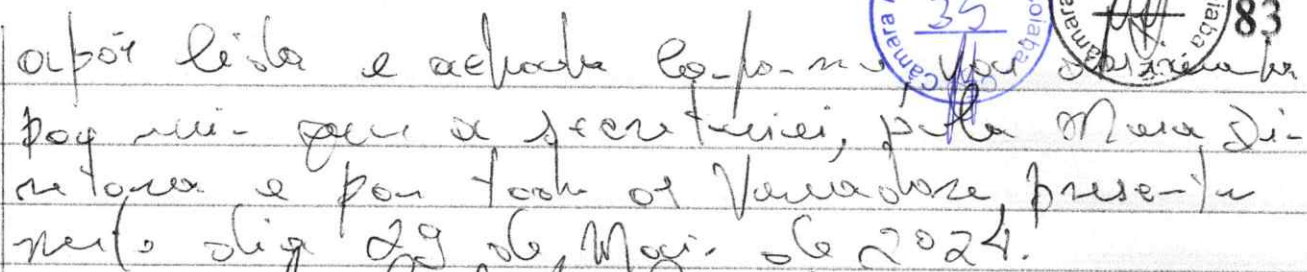 após lida e achada conforme, vai assinada
por mim que a secretariei, pela Mesa Di-
retora e por todos os Vereadores presentes
neste dia 29 de Maio de 2024.
35
Câmara
oiaba
83
Câmara
iaba